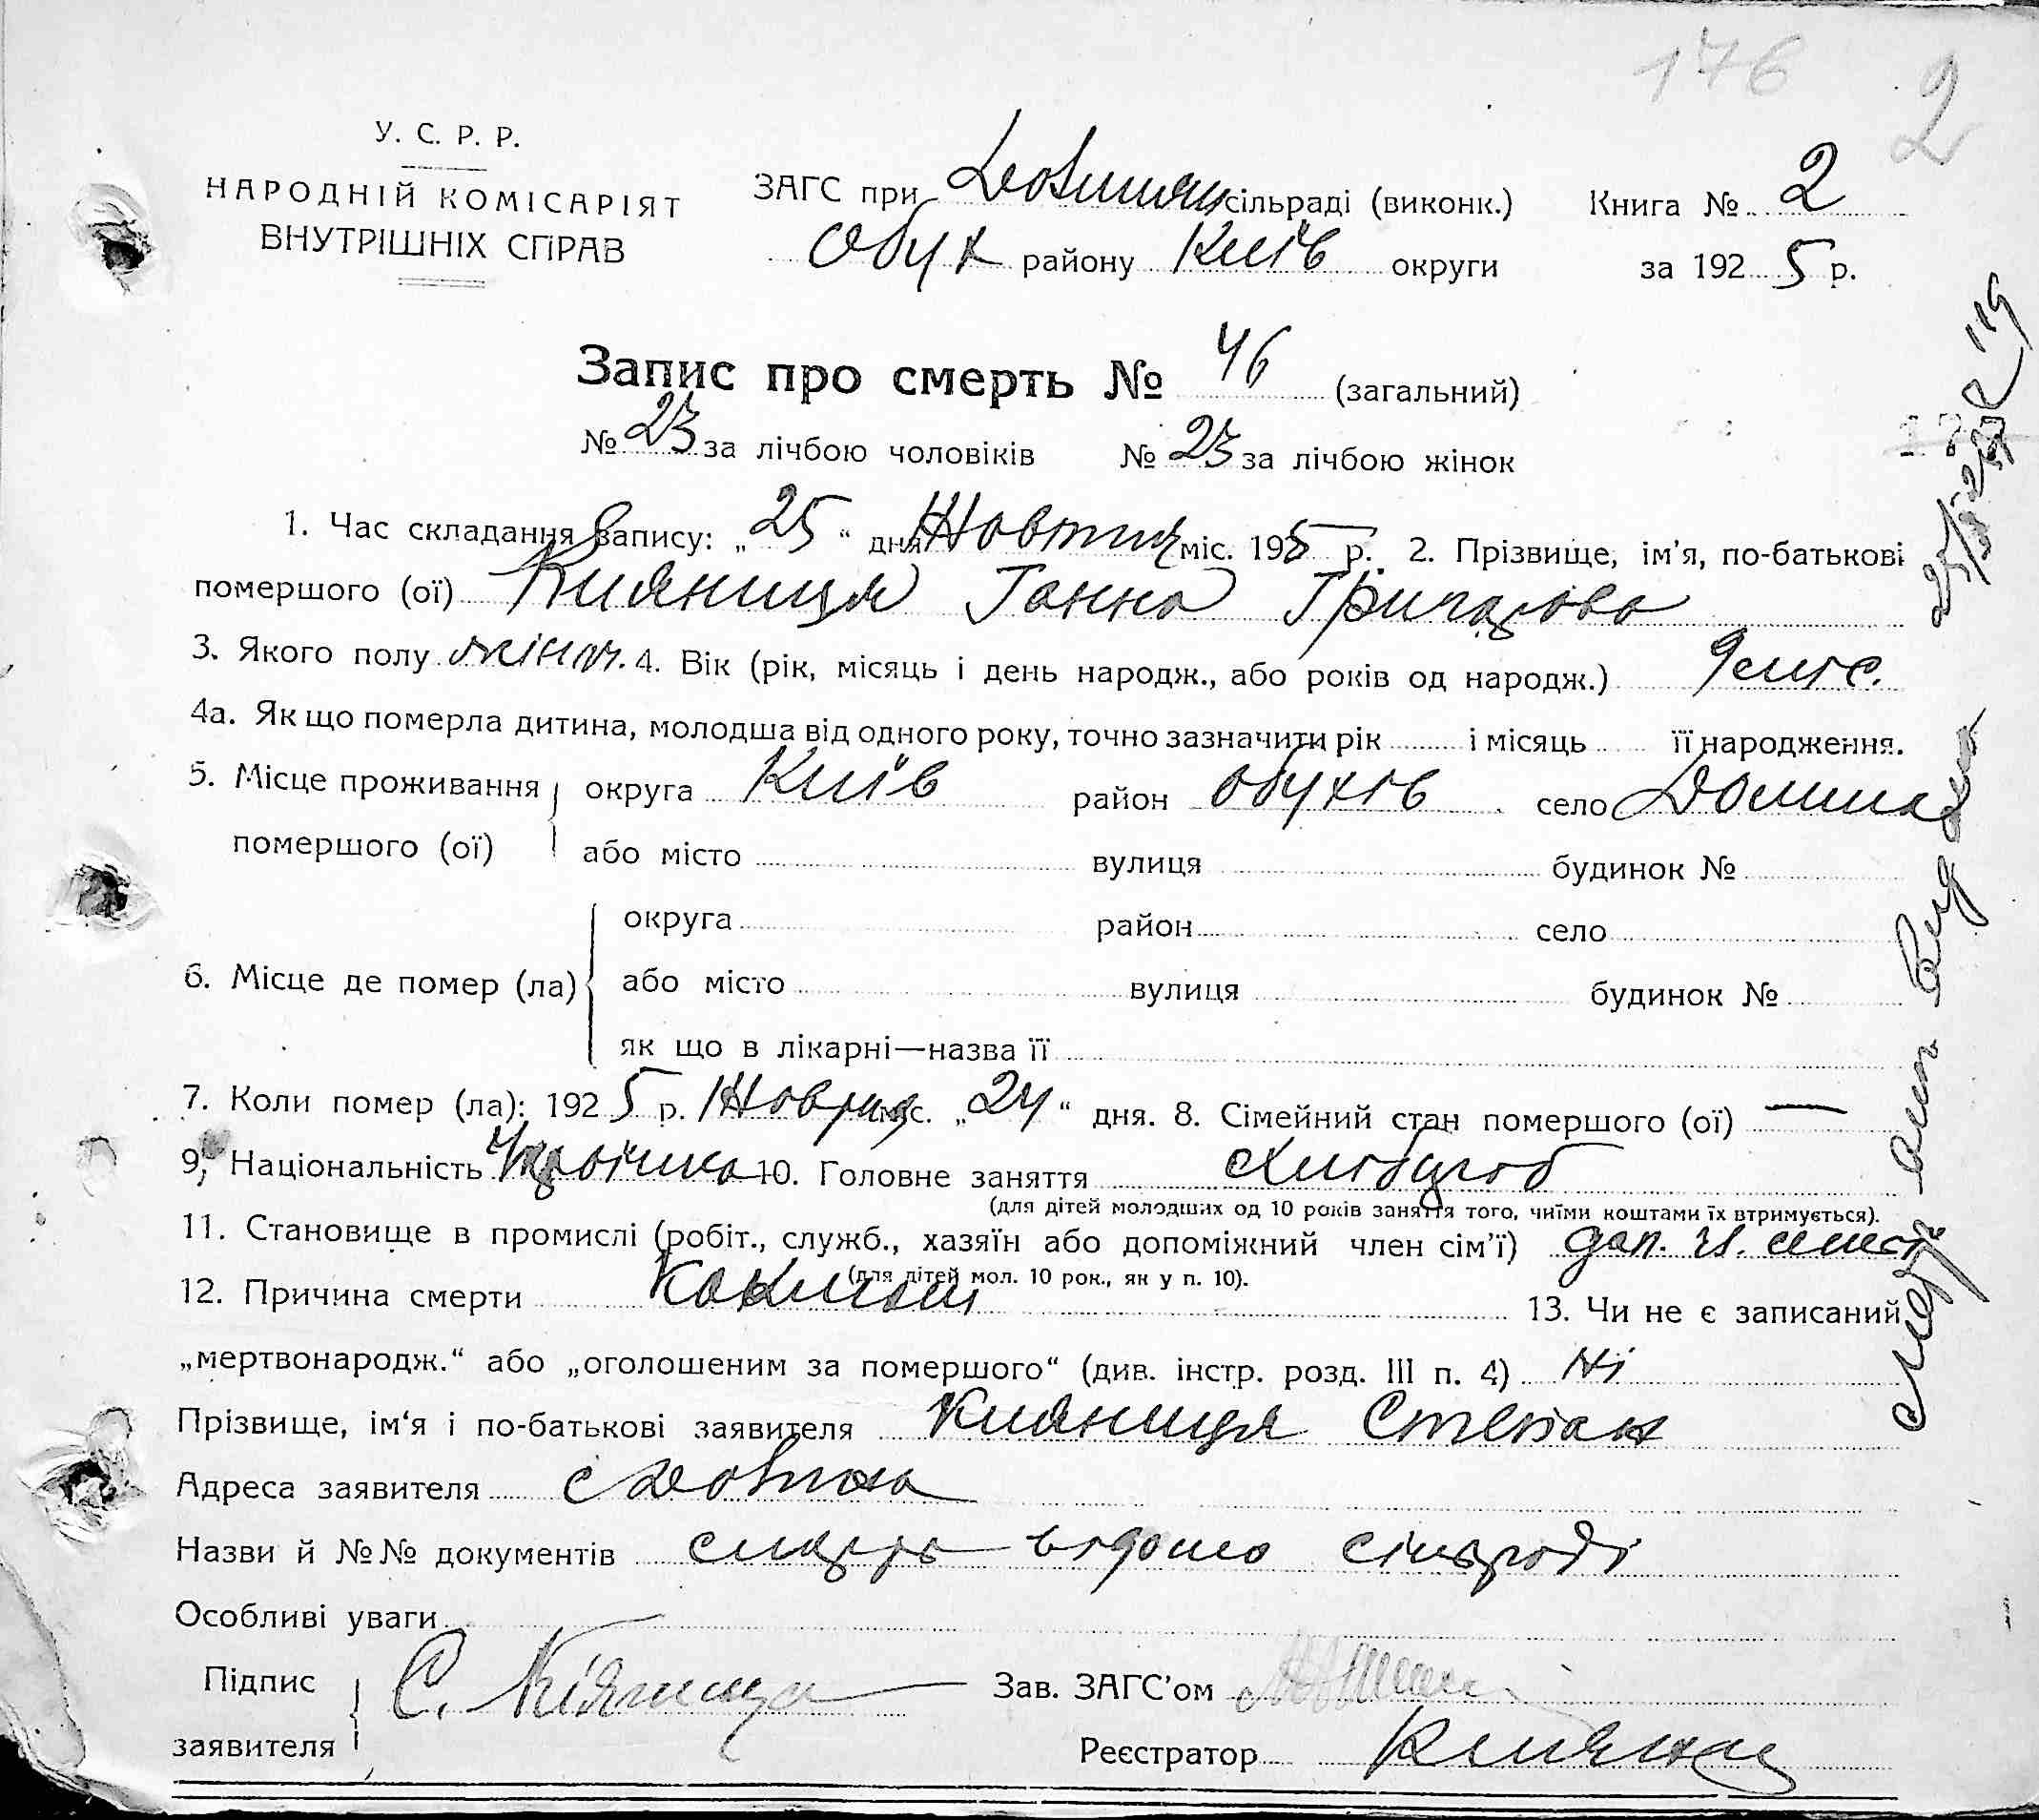 176 2
У. С. Р. Р.
НАРОДНІЙ КОМІСАРІЯТ
ВНУТРІШНІХ СПРАВ
ЗАГС при сільраді (виконк.) Книга № 2
Обух району Київ округи за 192 5 р.
Запис про смерть № 46 (загальний)
№ 23 за лічбою чоловіків № 23 за лічбою жінок
1. Час складання запису: „ 25 “ дня Жовтня міс. 195 р. 2. Прізвище, ім'я, по-батькові
помершого (ої) Кияниця Ганна
3. Якого полу жіноч. 4. Вік (рік, місяць і день народж., або років од народж.) 9 міс.
4а. Як що померла дитина, молодша від одного року, точно зазначити рік і місяць її народження.
5. Місце проживання округа Київ район Обухів село
помершого (ої) або місто вулиця будинок №
округа район село
6. Місце де помер (ла) або місто вулиця будинок №
як що в лікарні—назва її
7. Коли помер (ла): 192 5 р. Жовтня міс. „ 24 “ дня. 8. Сімейний стан помершого (ої) —
9. Національність Українка 10. Головне заняття хлібороб
(для дітей молодших од 10 років заняття того, чиїми коштами їх втримується).
11. Становище в промислі (робіт., служб., хазяїн або допоміжний член сім'ї) доп. чл. сімї
(для дітей мол. 10 рок., як у п. 10).
12. Причина смерти Коклюш 13. Чи не є записаний
„мертвонародж.“ або „оголошеним за помершого“ (див. інстр. розд. III п. 4) Ні
Прізвище, ім'я і по-батькові заявителя Кияниця Степан
Адреса заявителя с
Назви й №№ документів смерть відома сільраді
Особливі уваги
Підпис С. Кіяниця Зав. ЗАГС'ом
заявителя Реєстратор